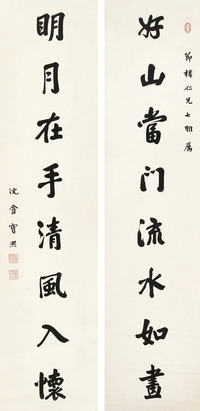 節仁兄大雅屬
好山當門流水如畫
眀月在手清風入懷
沈盦寶熙